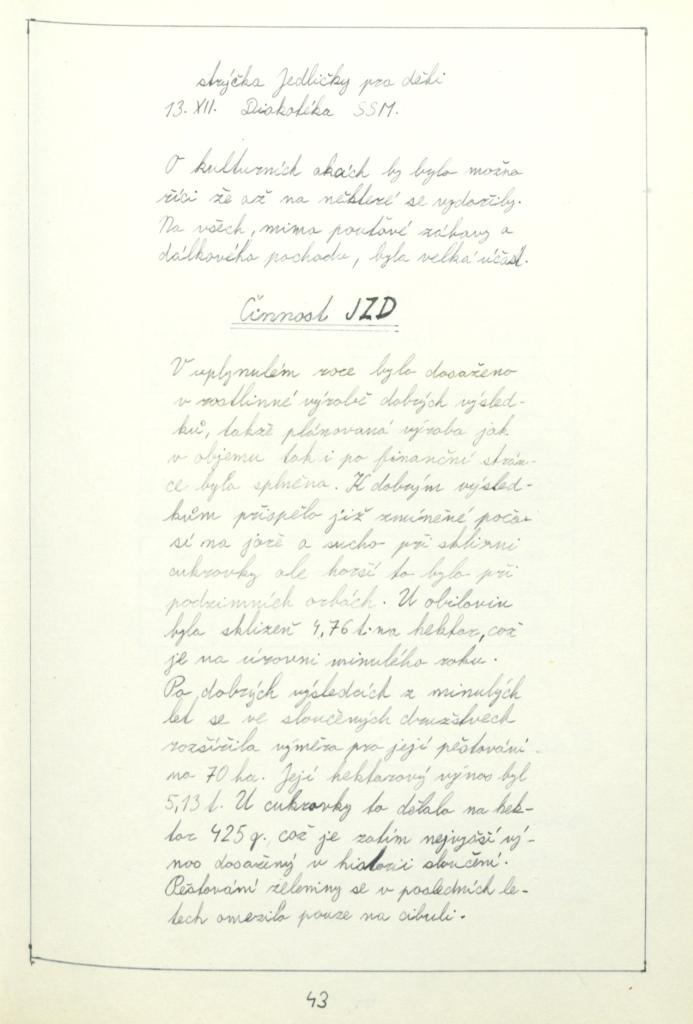 strýčka Jedličky pro děti
13. XII. Diskotéka SSM.
O kulturních akcích by bylo možno
říci že až na některé se vydařily.
Na všech, mimo pouťové zábavy a
dálkového pochodu, byla velká účast.
Činnost JZD
V uplynulém roce bylo dosaženo
v rostlinné výrobě dobrých výsled-
ků, takže plánovaná výroba jak
v objemu tak i po finanční strán-
ce byla splněna. K dobrým výsled-
kům přispělo již zmíněné poča-
sí na jaře a sucho při sklizni
cukrovky ale horší to bylo při
podzimních orbách. U obilovin
byla sklizeň 4,76 t. na hektar, což
je na úrovni minulého roku.
Po dobrých výsledcích z minulých
let se ve sloučených družstvech
rozšířila výměra pro její pěstování
na 70 ha. Její hektarový výnos byl
5,13 t. U cukrovky to dělalo na hek-
tar 425 q., což je zatím nejvyšší vý-
nos dosažený v historii sloučení.
Pěstování zeleniny se v posledních le-
tech omezilo pouze na cibuli.
43